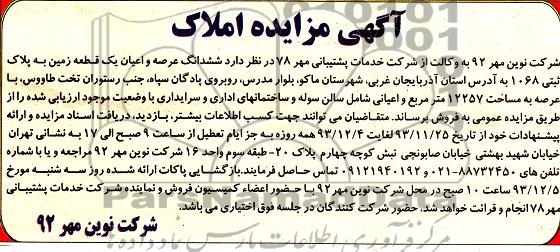 آگهی مزایده املاک
شرکت نوین مهر ۹۲ به وکالت از شرکت خدمات پشتیبانی مهر ۷۸ در نظر دارد ششدانگ عرصه و اعیان یک قطعه زمین به پلاک
ثبتی ۱۰۶۸ به آدرس استان آذربایجان غربی، شهرستان ماکو، بلوار مدرس، روبروی پادگان سپاه، جنب رستوران تخت طاووس، با
عرصه به مساحت ۱۲۲۵۷ متر مربع و اعیانی شامل سالن سوله و ساختمانهای اداری و سرایداری با وضعیت موجود ارزیابی شده را از
طریق مزایده عمومی به فروش برساند. متقاضیان می توانند جهت کسب اطلاعات بیشتر، بازدید، دریافت اسناد مزایده و ارائه
پیشنهادات خود از تاریخ ۹۳/۱۱/۲۵ لغایت ۹۳/۱۲/۴ همه روزه به جز ایام تعطیل از ساعت ۹ صبح الی ۱۷ به نشانی تهران
خیابان شهید بهشتی خیابان صابونچی نبش کوچه چهارم پلاک ۲۰- طبقه سوم واحد ۱۶ شرکت نوین مهر ۹۲ مراجعه و یا با شماره
تلفن های ۸۸۷۳۲۴۵۰-۰۲۱ و ۰۹۱۲۱۹۴۰۱۹۲ تماس حاصل فرمایند. بازگشایی پاکات ارائه شده روز سه شنبه مورخ
۹۳/۱۲/۵ ساعت ۱۰ صبح در محل شرکت نوین مهر ۹۲ با حضور اعضاء کمیسیون فروش و نماینده شرکت خدمات پشتیبانی
مهر ۷۸ انجام و قرائت خواهد شد. حضور شرکت کنندگان در جلسه فوق اختیاری می باشد.
شرکت نوین مهر ۹۲